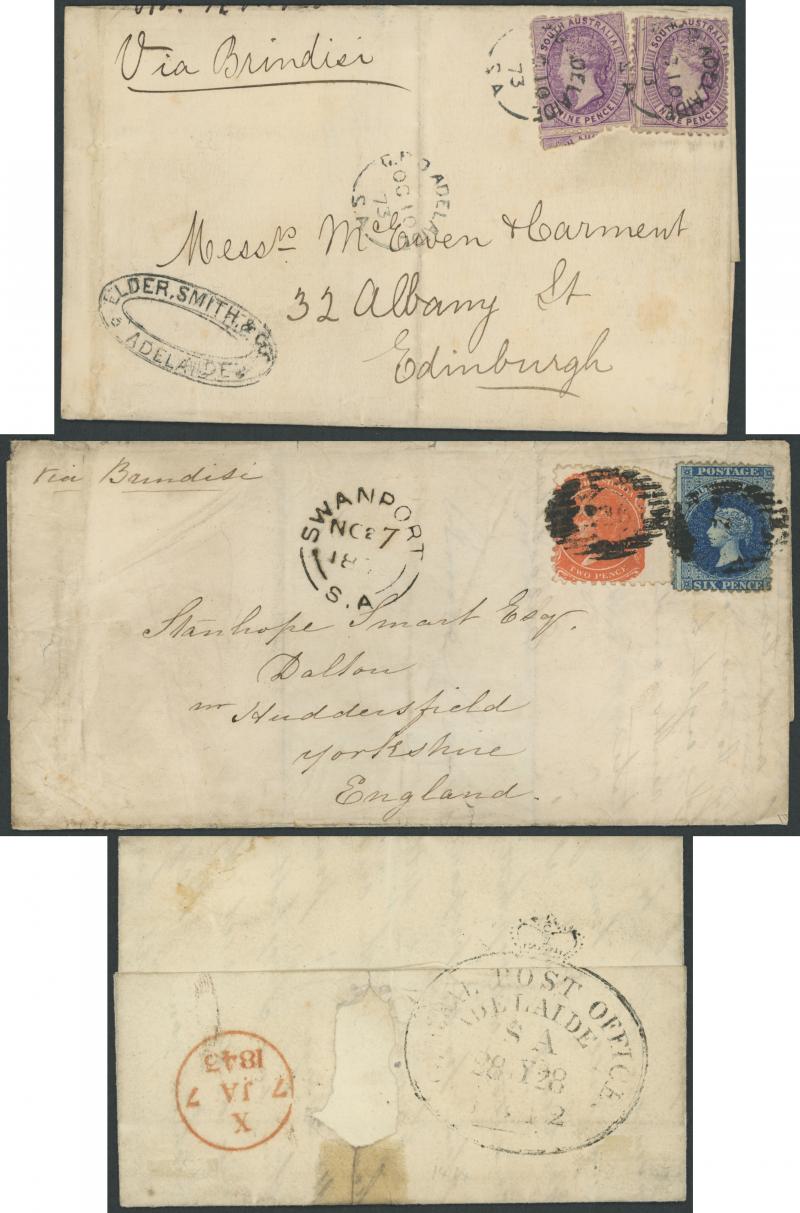 Via Brindisi
SOUTH AUSTRALIAN
NINE PENCE
SOUTH AUSTRALIAN
NINE PENCE
ADELAIDE
73
S.A
ADELAIDE
73
S A
G.P.O ADELAI
OC 10
73
S.A
Mess.rs McEwen & Carment
32 Albany St
Edinburgh
ELDER, SMITH, & Co.
ADELAIDE
via Brindisi
SWANPORT
NO 27
18
S.A
TWO PENCE
POSTAGE
SIX PENCE
Stanhope Smart Esq.
Dalton
nr Huddersfield
Yorkshire
England.
POST OFFICE
ADELAIDE
S A
28 28
2
X
7 JA 7
1843